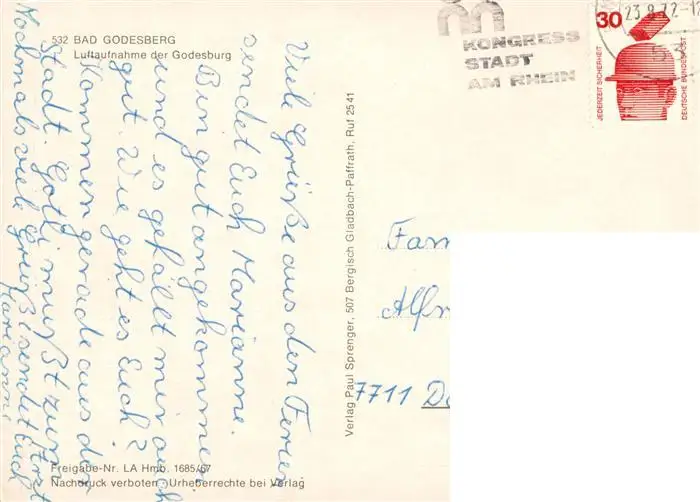 532 BAD GODESBERG
Luftaufnahme der Godesburg
Viele Grüße aus den Ferien
sendet Euch Marianne.
Bin gut angekommen
und es gefällt mir auch
gut. Wie geht es Euch?
Kommen gerade aus der
Stadt. mußt zum Arzt
Nochmals viele Grüße sendet Euch
Marianne
Freigabe-Nr. LA Hmb. 1685/67
Nachdruck verboten Urheberrechte bei Verlag
Verlag Paul Sprenger, 507 Bergisch Gladbach-Paffrath, Ruf 2541
KONGRESS
STADT
AM RHEIN
23.8.72-17
30
JEDERZEIT SICHERHEIT
DEUTSCHE BUNDESPOST
Fam
Alfr
7711 D